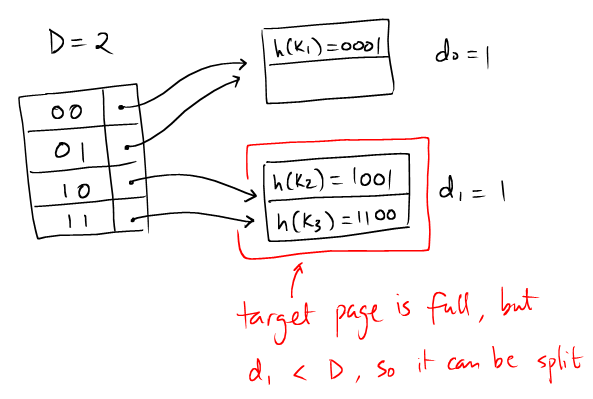 D = 2
h(K₁) = 0001
d₀ = 1
00
01
10
11
h(K₂) = 1001
h(K₃) = 1100
d₁ = 1
target page is full, but
d₁ < D, so it can be split